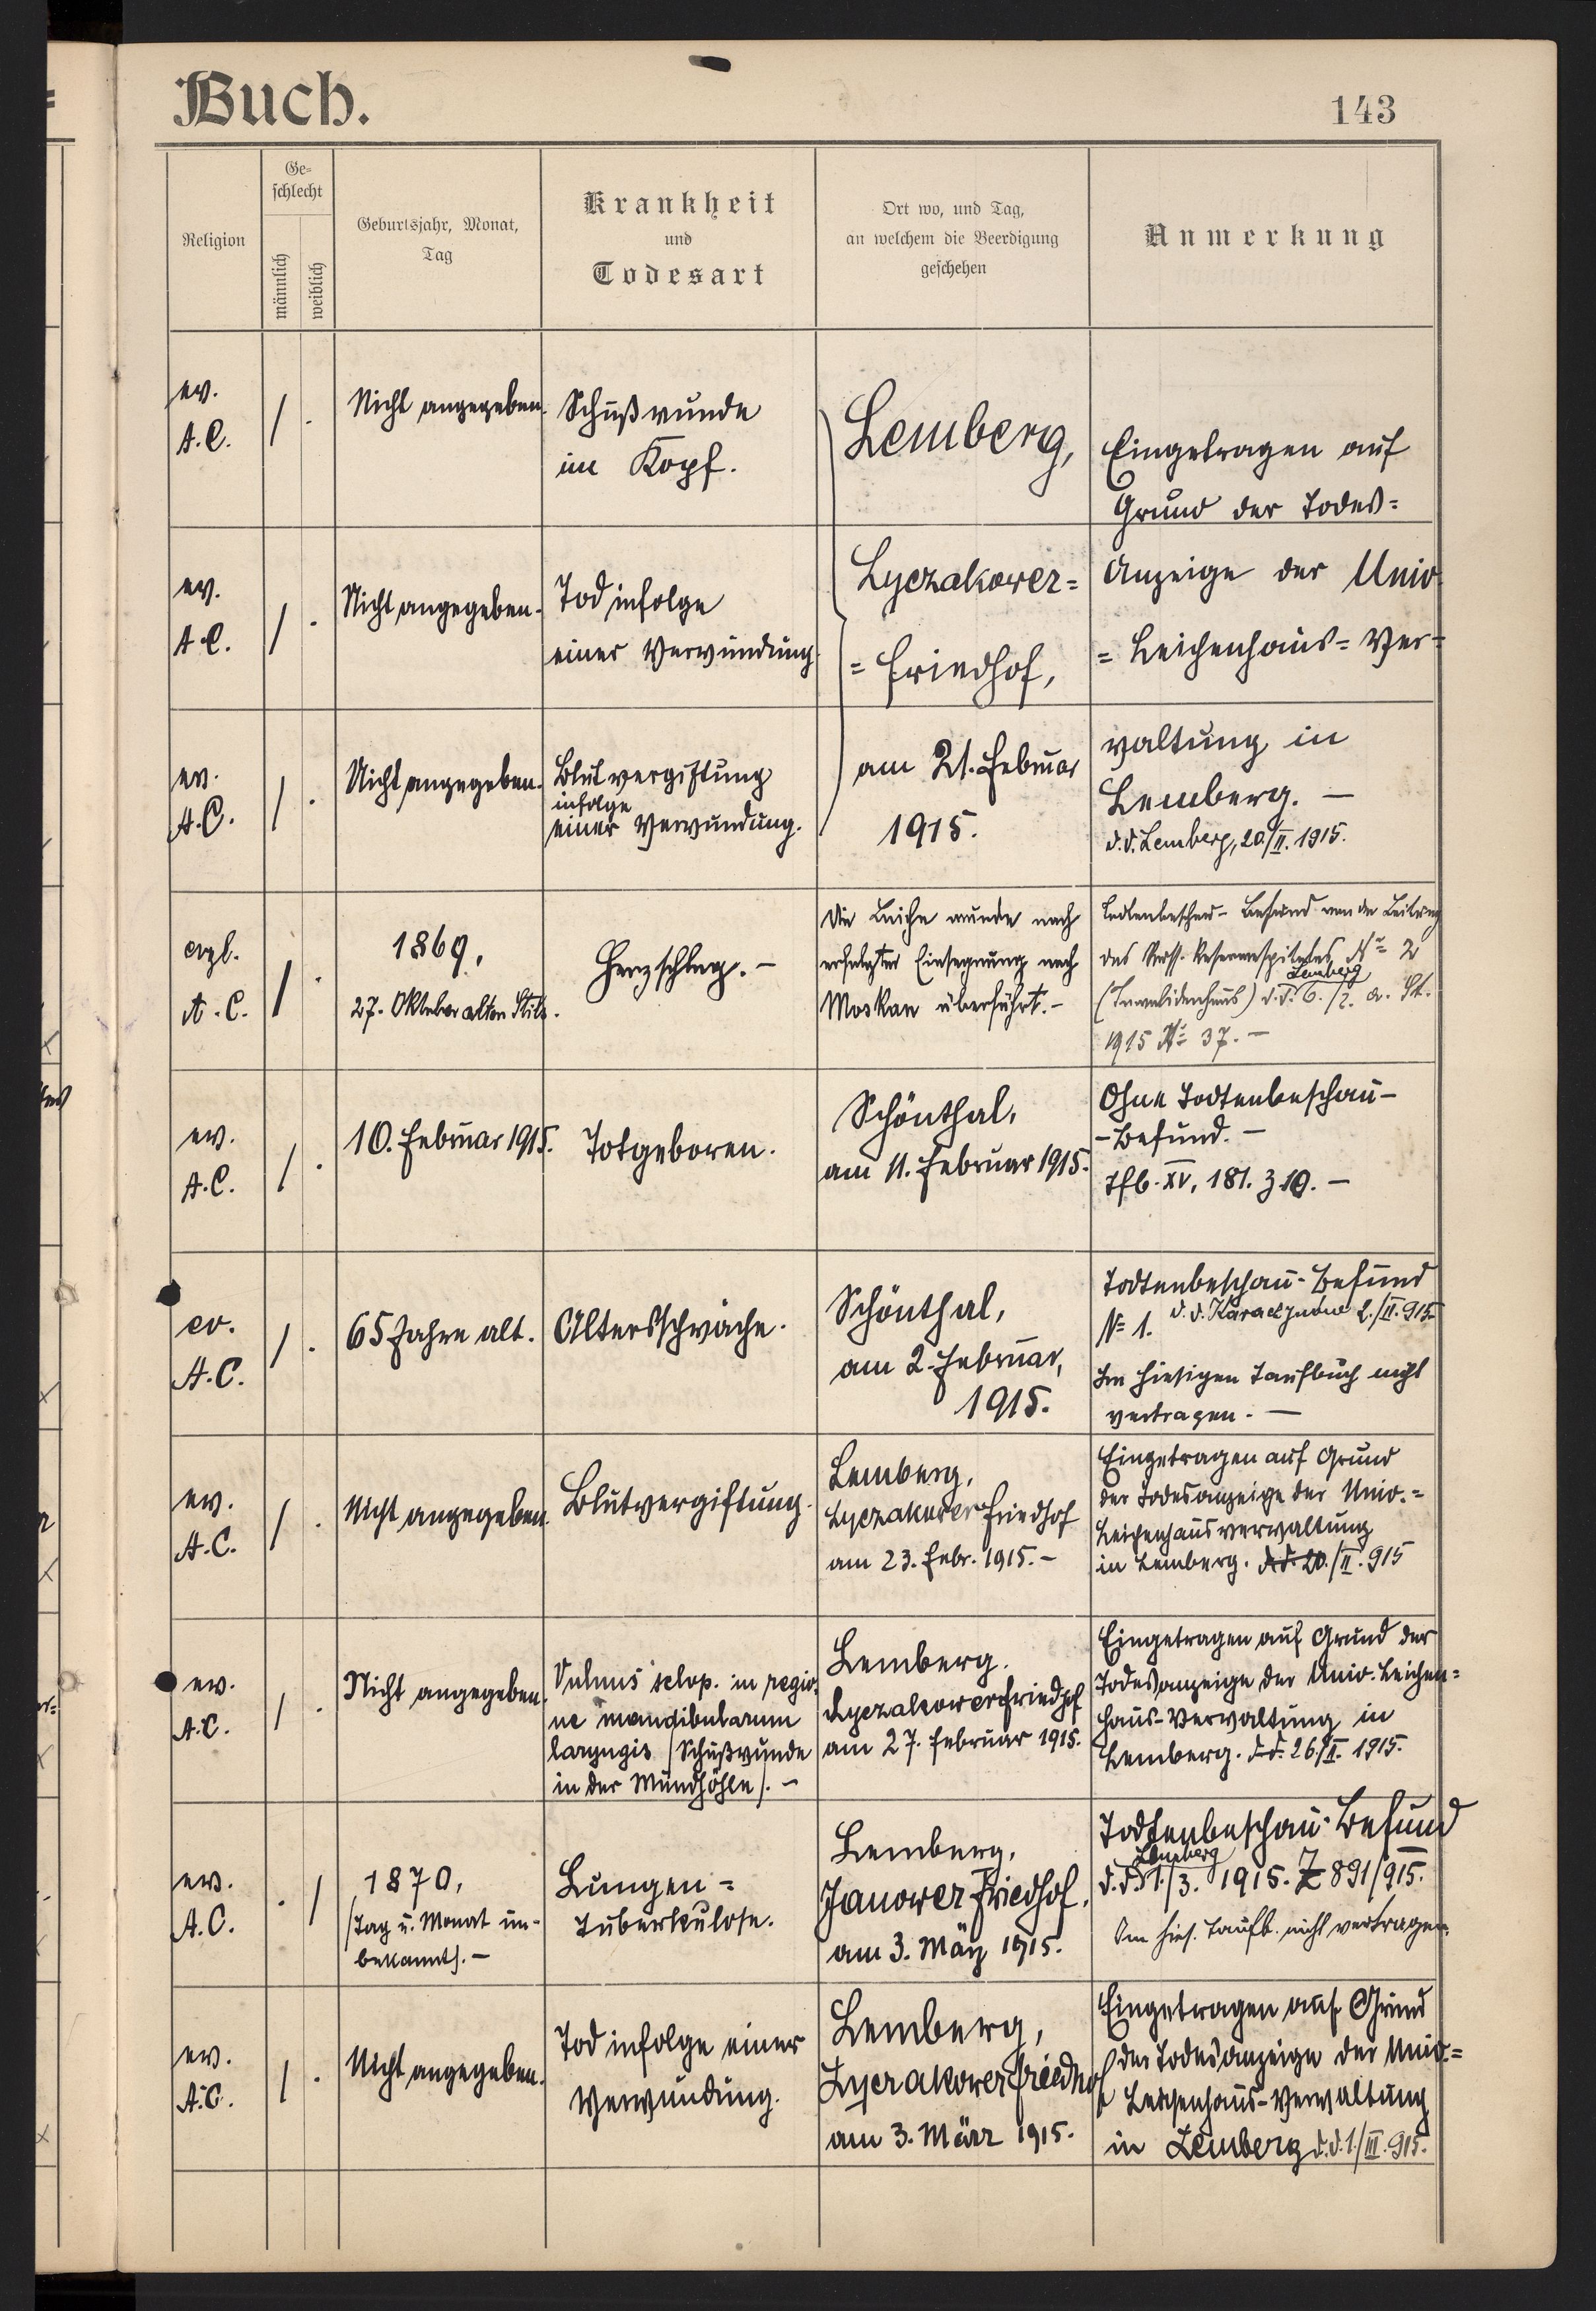 Buch.
143
Religion
Ge-
schlecht
männlich
weiblich
Geburtsjahr, Monat,
Tag
Krankheit
und
Todesart
Ort wo, und Tag,
an welchem die Beerdigung
geschehen
Anmerkung
ev.
A.C.
/ .
Nicht angegeben.
Schußwunde
im Kopf.
Lemberg,
Eingetragen auf
Grund der Todes=
ev.
A.C.
/ .
Nicht angegeben.
Tod infolge
einer Verwundung.
Lyczakower=
=Friedhof,
Anzeige der Univ.
=Leichenhaus=Ver=
ev.
A.C.
/ .
Nicht angegeben.
Blutvergiftung
infolge
einer Verwundung.
am 21. Februar
1915.
waltung in
Lemberg. —
d.d. Lemberg, 20./II. 1915.
evgl.
A.C.
/ .
1869,
27. Oktober alten Stils.
Herzschlag. —
Die Leiche wurde nach
erfolgter Einsegnung nach
Moskau überführt. —
Todtenbeschau-Befund von der Leitung
des Russ. Reservespitales, Nº 2
Lemberg
(Invalidenhaus) d.d. 6./2. a. St.
1915 Nº 37. —
ev.
A.C.
/ .
10. Februar 1915.
Totgeboren.
Schönthal,
am 11. Februar 1915.
Ohne Todtenbeschau-
-Befund. —
Tfb. XV, 181. Z 19. —
ev.
A.C.
/ .
65 Jahre alt.
Altersschwäche.
Schönthal,
am 2. Februar,
1915.
Todtenbeschau-Befund
Nº 1. d.d. 2./II. 915.
Im hiesigen Taufbuch nicht
vertragen. —
ev.
A.C.
/ .
Nicht angegeben.
Blutvergiftung.
Lemberg,
Lyczakower Friedhof
am 23. Febr. 1915. —
Eingetragen auf Grund
der Todesanzeige der Univ.=
Leichenhausverwaltung
in Lemberg. d.d. 20./II. 915
ev.
A.C.
/ .
Nicht angegeben.
Vulnus sclop. in regio-
ne mandibularum
laryngis /Schußwunde
in der Mundhöhle/. —
Lemberg.
Lyczakower Friedhof
am 27. Februar 1915.
Eingetragen auf Grund der
Todesanzeige der Univ. Leichen=
haus-Verwaltung in
Lemberg. d.d. 26./II. 1915.
ev.
A.C.
. /
1870,
/Tag u. Monat un-
bekannt/. —
Lungen=
Tuberkulose.
Lemberg,
Janower Friedhof,
am 3. März 1915.
Todtenbeschau-Befund
Lemberg
d.d. 1./3. 1915. Z 891/915.
Im hies. Taufb. nicht vertragen.
ev.
A.C.
/ .
Nicht angegeben.
Tod infolge einer
Verwundung.
Lemberg,
Lyczakower Friedhof
am 3. März 1915.
Eingetragen auf Grund
der Todesanzeige der Univ.=
Leichenhaus-Verwaltung
in Lemberg d.d. 1./III. 915.